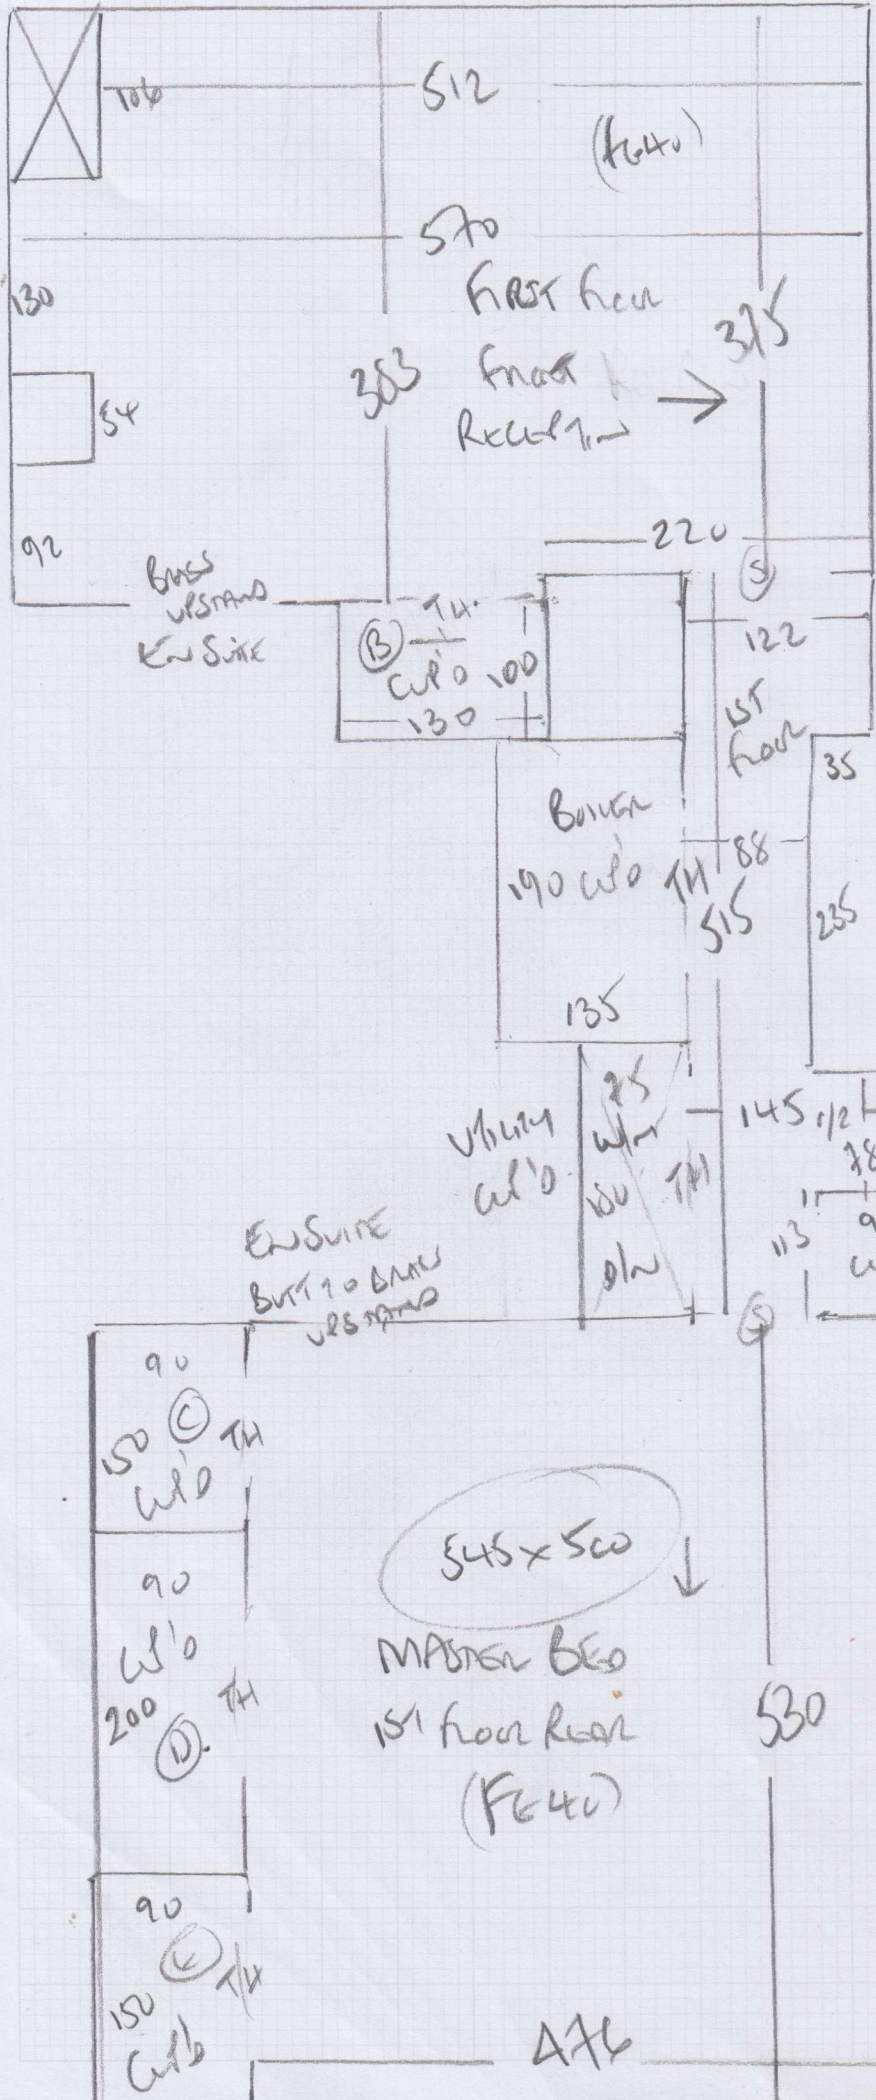 106
512
(FE40)
570
130
FIRST FLOOR
FRONT
RECEPTION
375
383
54
92
220
BRASS
UPSTAND
ENSUITE
S
B
TH
CUP'D
100
130
122
1ST
FLOOR
35
BOILER
190 CUP'D
TH
88
515
235
135
75
W/M
150
D/N
TH
UTILITY
CUP'D
145
1/2
78
113
ENSUITE
BUTT TO BRASS
UPSTAND
S
90
C
150
TH
CUP'D
545 x 500
90
CUP'D
200
TH
D
MASTER BED
1ST FLOOR REAR
(FE40)
530
90
E
TH
150
CUP'D
476